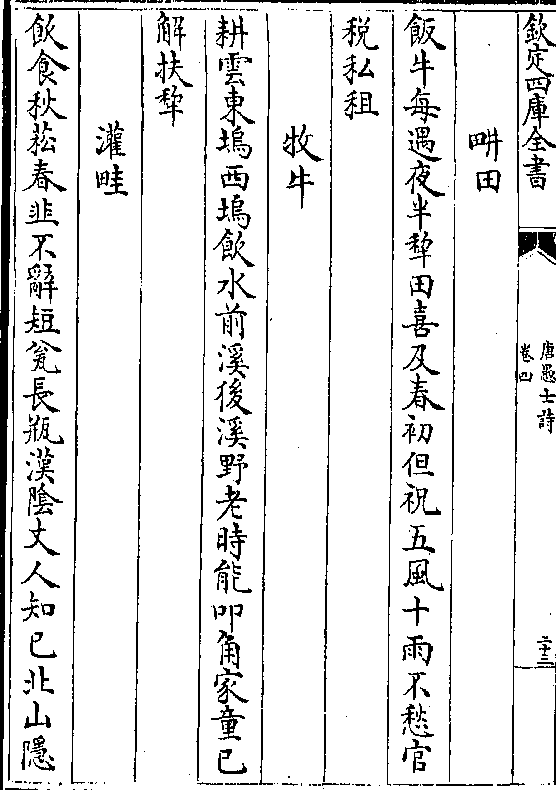 欽定四庫全書
唐愚士詩
卷四
二十三
畊田
飯牛每遇夜半犂田喜及春初但祝五風十雨不愁官
稅私租
牧牛
耕雲東塢西塢飲水前溪後溪野老時能叩角家童已
解扶犂
灌畦
飲食秋菘春韭不辭短瓮長瓶漢陰丈人知已北山隱